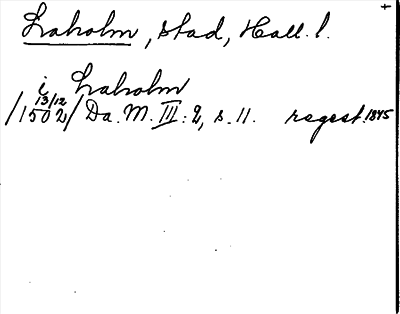 Laholm, stad, Hall. l. +
i Laholm
13/12
/1502/ Da. M. III: 2, s. 11. regest. 1845